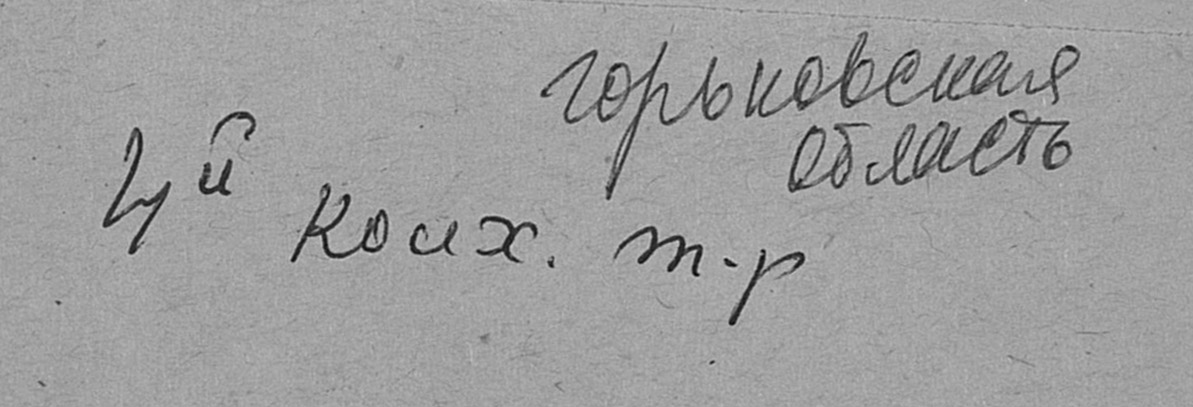 Горьковская
область
4й колх. т-р